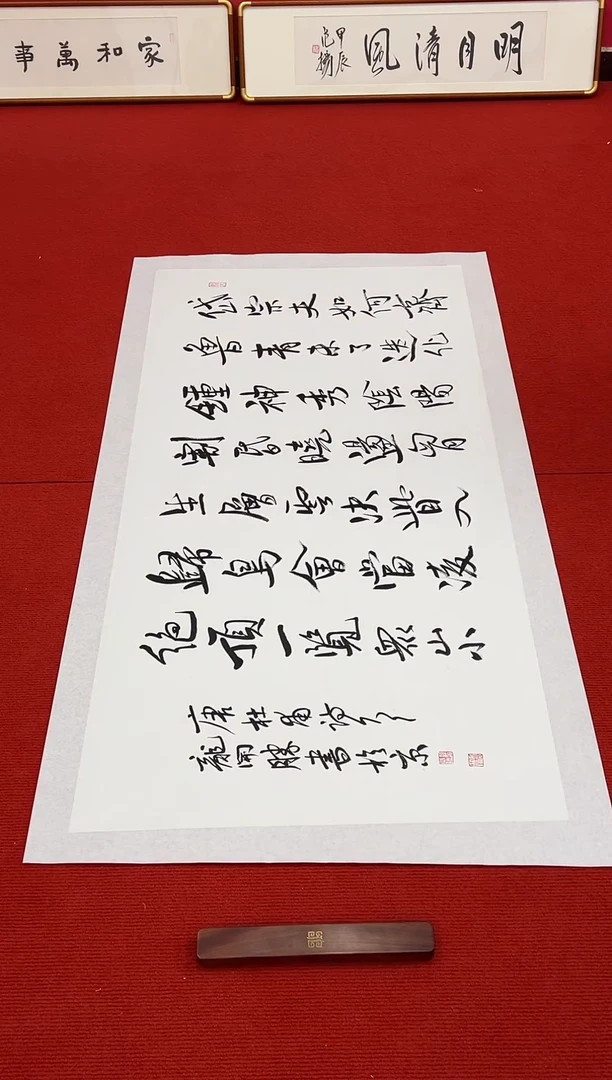 家和萬事
明月清風
甲辰
岱宗夫如何齊
魯青未了造化
鍾神秀陰陽
割昏曉盪胸
生層雲決眥入
歸鳥會當凌
絕頂一覽眾山小
唐杜甫詩
龍開勝書於京